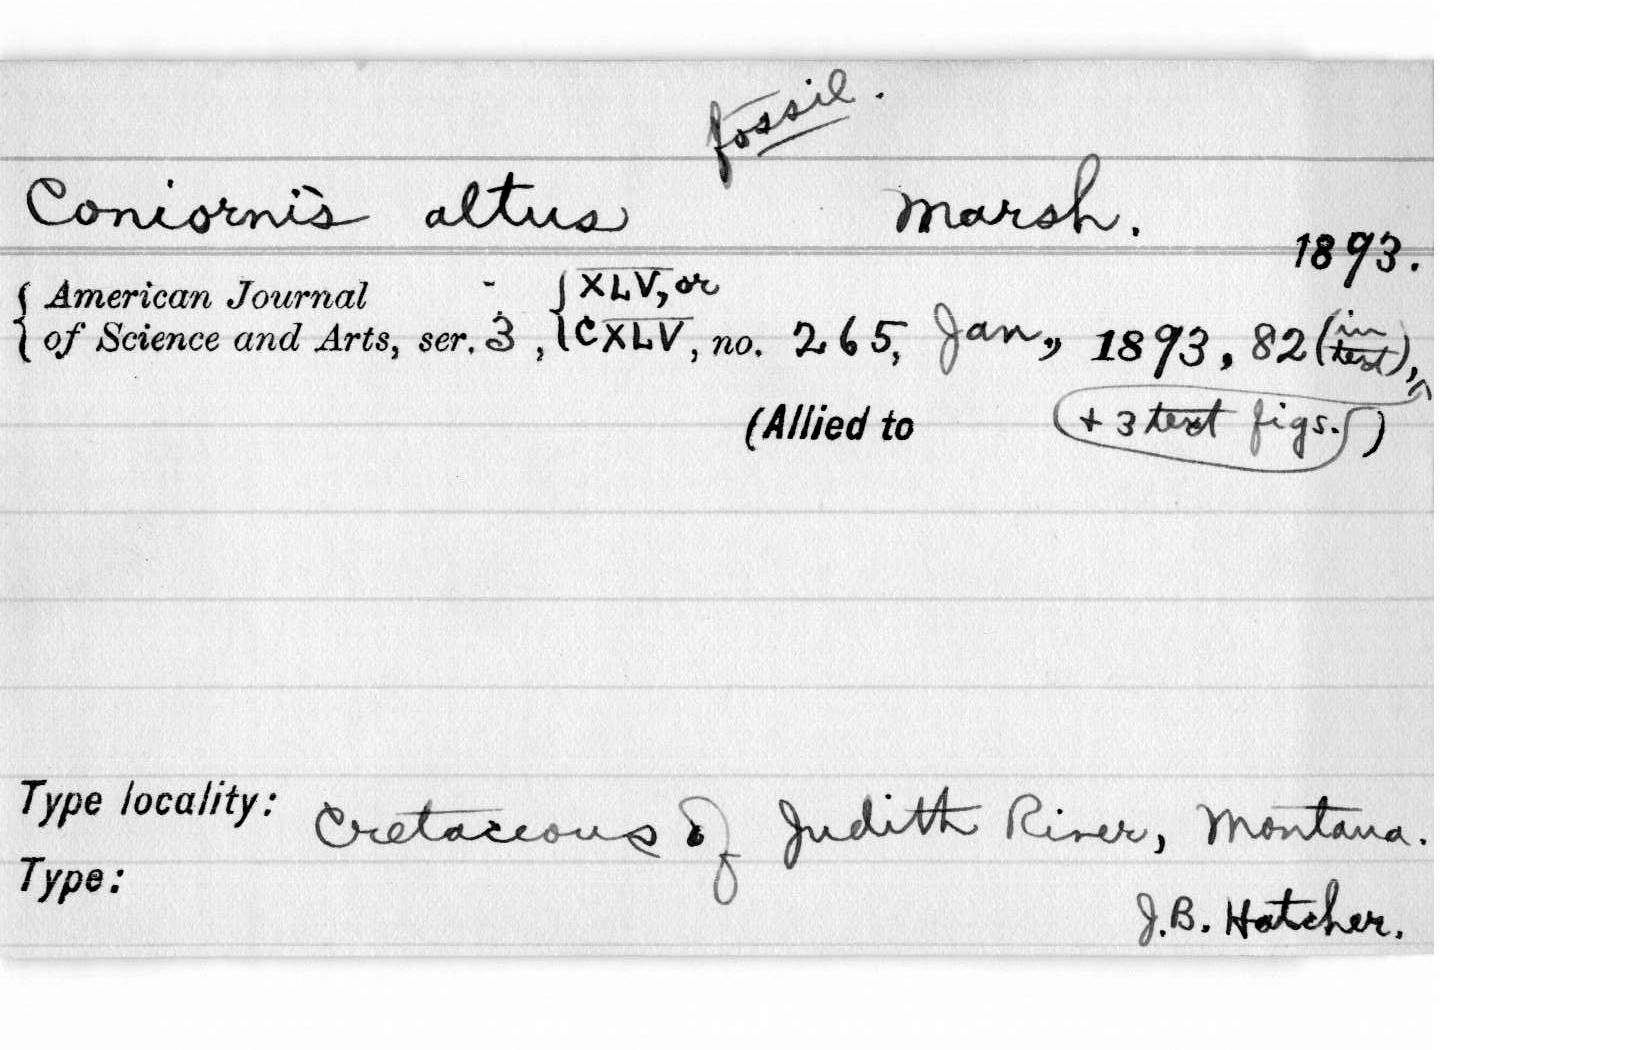 fossil.
Coniornis altus Marsh.
1893.
American Journal XLV, or
of Science and Arts, ser. 3, CXLV, no. 265, Jan., 1893, 82 (in text),
(Allied to + 3 text figs. )
Type locality: Cretaceous of Judith River, Montana.
Type:
J.B. Hatcher.